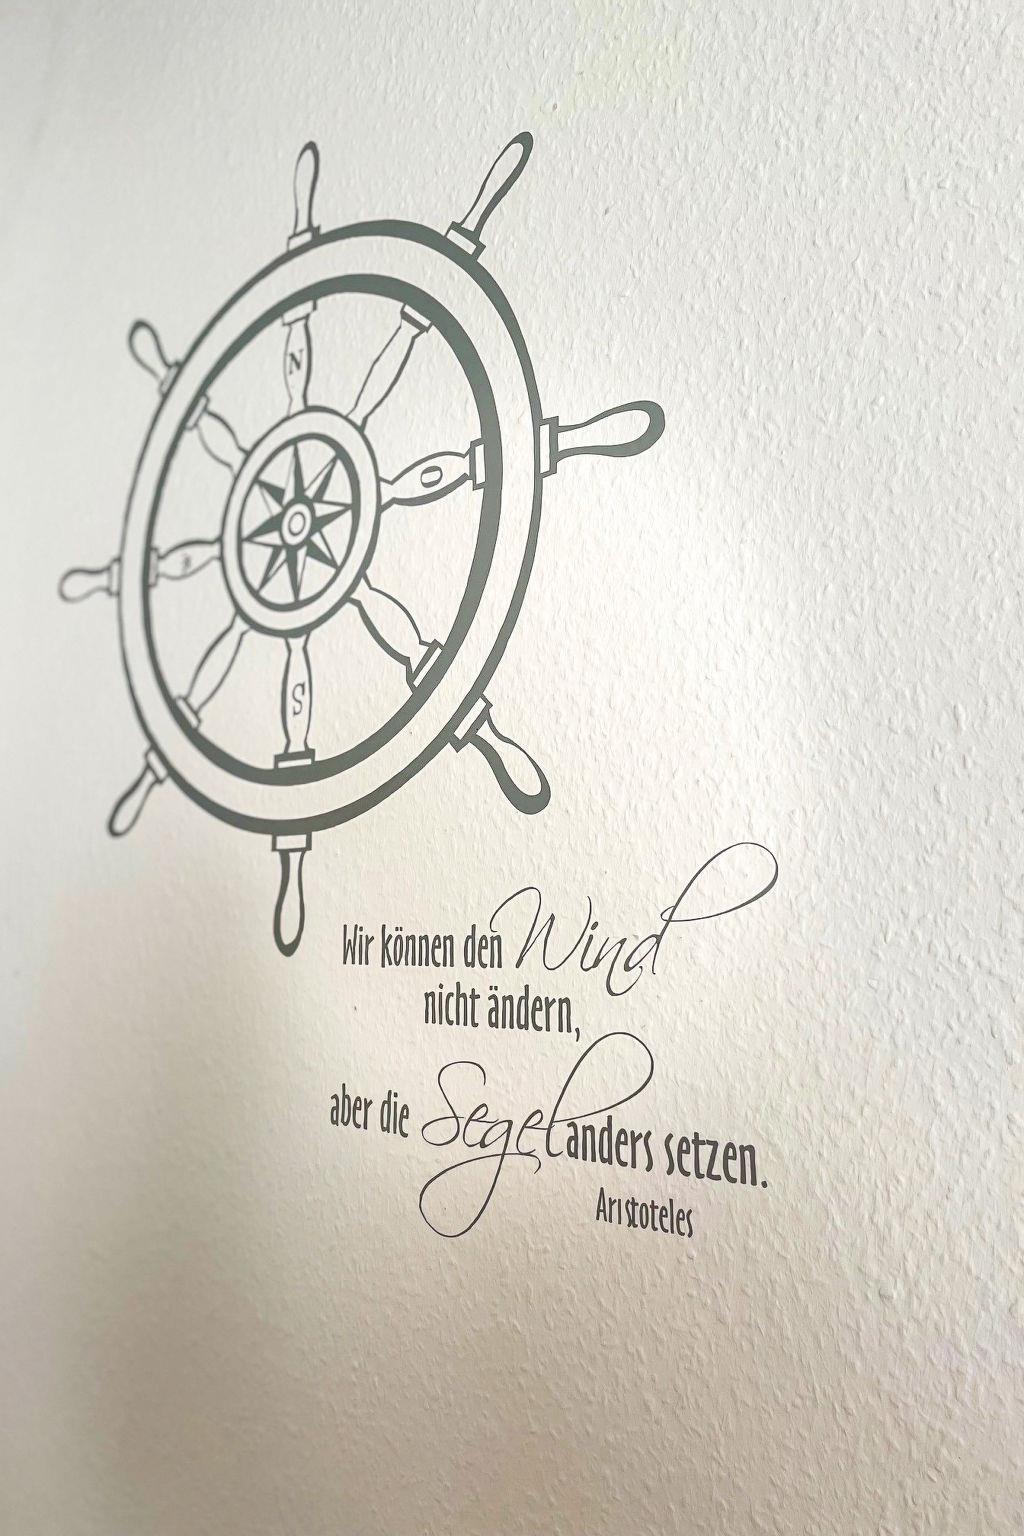 N
O
S
Wir können den Wind
nicht ändern,
aber die Segel anders setzen.
Aristoteles